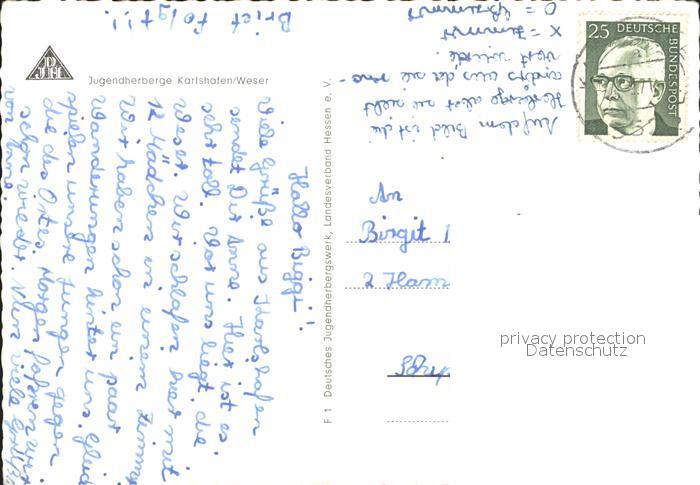 Brief
folgt!!
Jugendherberge Karlshafen/Weser
Hallo Biggi!!
Viele Grüße aus Karlshafen
sendet Dir Anne. Hier ist es
sehr toll. Vor uns liegt die
Weser. Wir schlafen hier mit
12 Mädchen in einem Zimmer
Wir haben schon ein paar
Wanderungen hinter uns. Gleich
spielen unsere Jungen gegen
die des Ortes. Morgen fahren wir
schon wieder. Nun viele Grüße
von Anne.
F 1 Deutsches Jugendherbergswerk, Landesverband Hessen e. V.
Auf dem Bild ist die
Herberge aber nie nicht
anders als da sie
wurde.
X =
O =
25 DEUTSCHE
BUNDESPOST
An
Birgit
2 Ham
privacy protection
Datenschutz